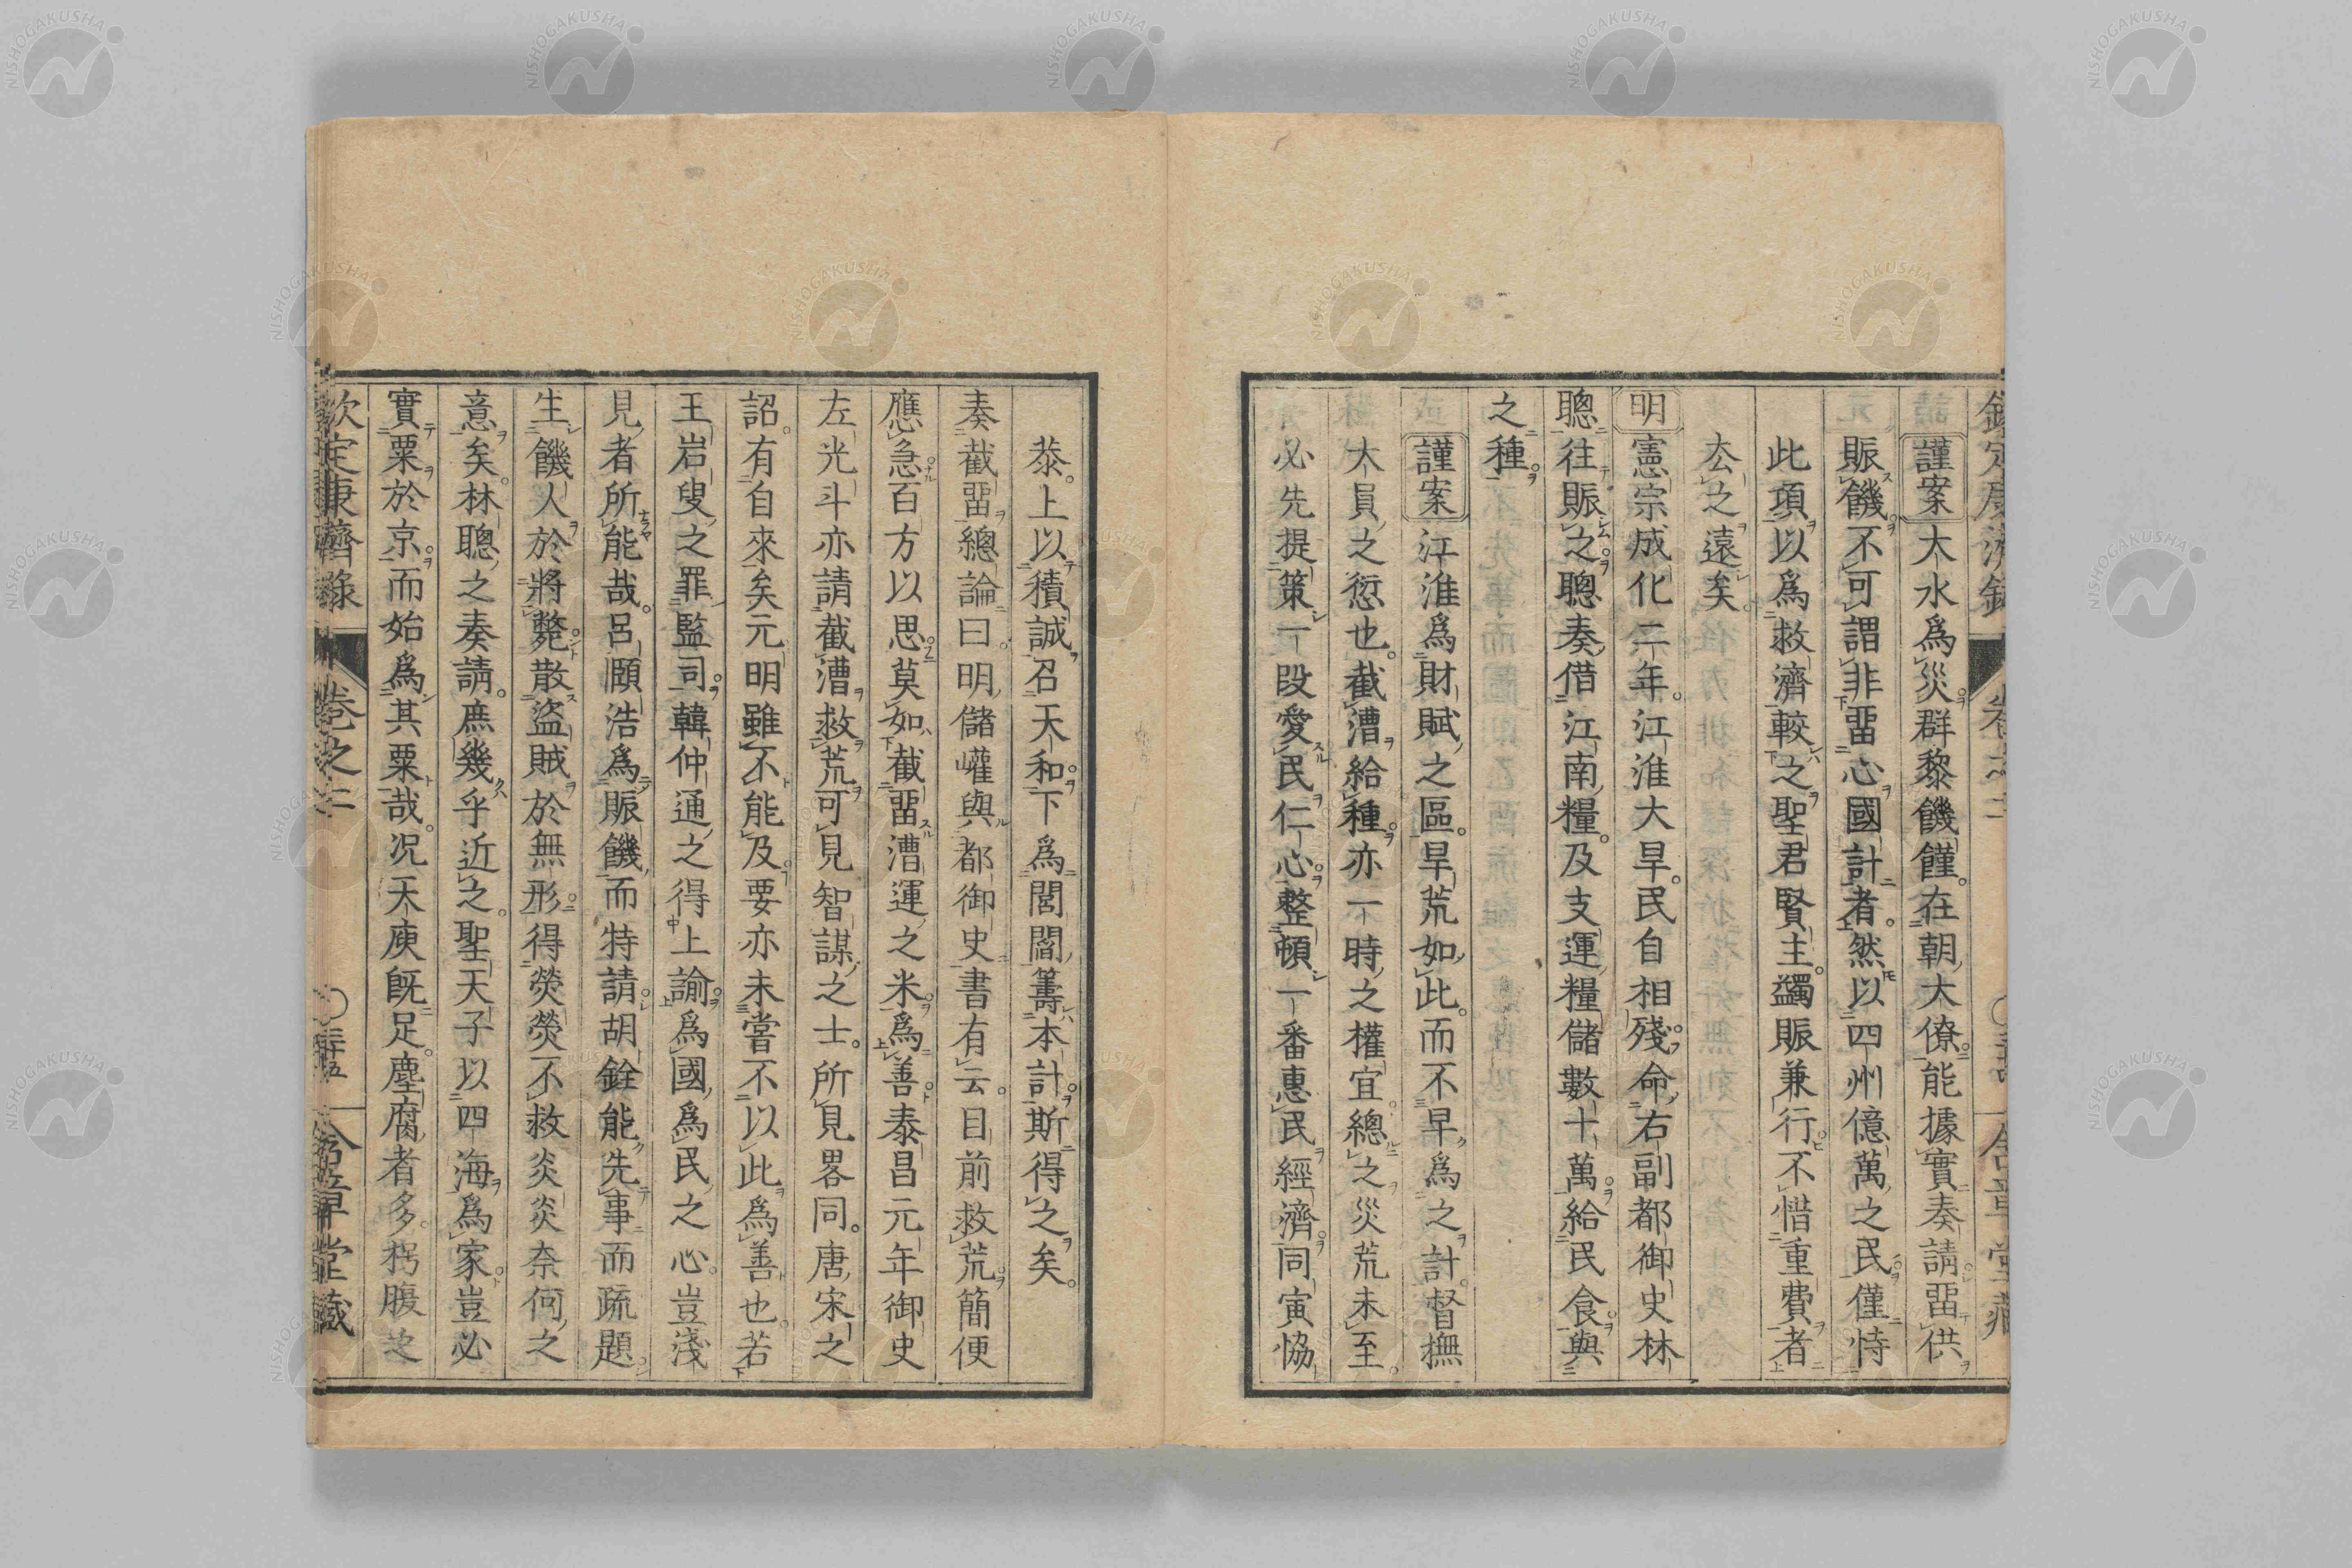 謹案大水爲災。群黎饑饉。在朝大僚。能據實奏請畱供
賑饑。不可謂非畱心國計者。然以四州億萬之民。僅恃
此項以爲救濟。較之聖君賢主。蠲賑兼行。不惜重費者
厺之遠矣。
明憲宗成化二年。江淮大旱。民自相殘命。右副都御史林
聰往賑之。聰奏借江南糧。及支運糧儲數十萬。給民食。與
之種。
謹案江淮爲財賦之區。旱荒如此。而不早爲之計。督撫
大員之愆也。截漕給種。亦一時之權宜。總之災荒未至。
必先提策一段愛民仁心。整頓一番惠民經濟。同寅協
恭。上以積誠。召天和。下爲閭閻。籌本計。斯得之矣。
奏截畱總論曰。明儲巏與都御史書有云。目前救荒。簡便
應急。百方以思。莫如截畱漕運之米。爲善。泰昌元年御史
左光斗亦請截漕救荒。可見智謀之士。所見畧同。唐宋之
詔。有自來矣。元明雖不能及。要亦未嘗不以此爲善也。若
王岩叟之罪監司。韓仲通之得上諭。爲國爲民之心。豈淺
見者所能哉。呂頤浩爲賑饑而特請胡銓能先事而疏題
生饑人於將斃。散盜賊於無形。得熒熒不救炎炎奈何之
意矣。林聰之奏請。庶幾乎近之。聖天子以四海爲家。豈必
實粟於京。而始爲其粟哉。况天庾旣足。塵腐者多。枵腹之
欽定康濟錄 卷之二 〇三十五 含章堂藏